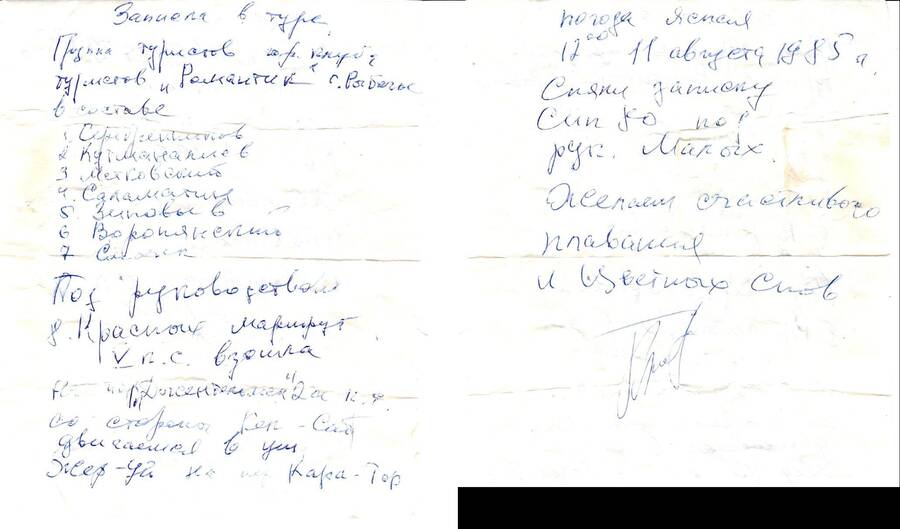 Записка в туре
Группа туристов клуба
туристов "Романтик" г. Рыбачье
в составе
1 Серебренников
2 Кутманалиев
3 Метковский
4. Саламатина
5 Зиновьев
6 Воропянский
7
Под руководством
8. Красных маршрут
V к.с. взошла
на пер "Джентльмен" 2а к.т.
со стороны Кок-Сай
двигаемся в ущ
Жер-Уй на пер Кара-Тор
погода ясная
12⁰⁰ 11 августа 1985 г.
Сняли записку
рук. Малых.
Желаем счастливого
плавания
и Цветных Снов